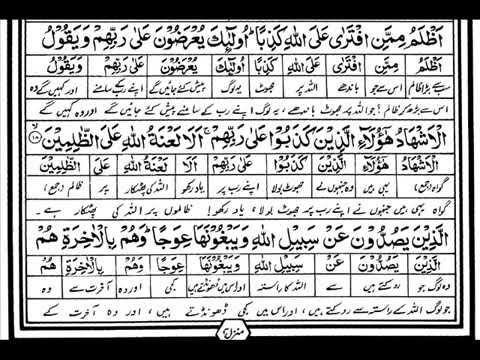 اَظْلَمُ مِمَّنِ افْتَرٰى عَلَى اللّٰهِ كَذِبًا ؕ اُولٰٓئِكَ يُعْرَضُوْنَ عَلٰى رَبِّهِمْ وَيَقُوْلُ
اَظْلَمُ مِمَّنِ افْتَرٰى عَلَى اللّٰهِ كَذِبًا اُولٰٓئِكَ يُعْرَضُوْنَ عَلٰى رَبِّهِمْ وَيَقُوْلُ
سب سے بڑا ظالم اس سے جو باندھے اللہ پر جھوٹ یہ لوگ پیش کئے جائیں گے اپنے رب کے سامنے اور کہیں گے وہ
اس سے بڑھ کر ظالم؟ جو اللہ پر جھوٹ باندھے، یہ لوگ اپنے رب کے سامنے پیش کئے جائیں گے اور وہ کہیں گے
الْاَشْهَادُ هٰٓؤُلَآءِ الَّذِيْنَ كَذَبُوْا عَلٰى رَبِّهِمْ ۚ اَلَا لَعْنَةُ اللّٰهِ عَلَى الظّٰلِمِيْنَ ۙ۝۱۸
الْاَشْهَادُ هٰٓؤُلَآءِ الَّذِيْنَ كَذَبُوْا عَلٰى رَبِّهِمْ اَلَا لَعْنَةُ اللّٰهِ عَلَى الظّٰلِمِيْنَ
گواہ (جمع) یہی ہیں وہ جنہوں نے جھوٹ بولا اپنے رب پر یاد رکھو اللہ کی پھٹکار پر ظالم (جمع)
گواہ یہی ہیں جنہوں نے اپنے رب پر جھوٹ بولا، یاد رکھو! ظالموں پر اللہ کی پھٹکار ہے۔
الَّذِيْنَ يَصُدُّوْنَ عَنْ سَبِيْلِ اللّٰهِ وَيَبْغُوْنَهَا عِوَجًا ؕ وَهُمْ بِالْاٰخِرَةِ هُمْ
الَّذِيْنَ يَصُدُّوْنَ عَنْ سَبِيْلِ اللّٰهِ وَيَبْغُوْنَهَا عِوَجًا وَهُمْ بِالْاٰخِرَةِ هُمْ
وہ لوگ جو روکتے ہیں سے اللہ کا راستہ اور اس میں ڈھونڈتے ہیں کجی اور وہ آخرت سے وہ
جو لوگ اللہ کے راستہ سے روکتے ہیں، اور اس میں کجی ڈھونڈتے ہیں، اور وہ آخرت کے
منزل ۳